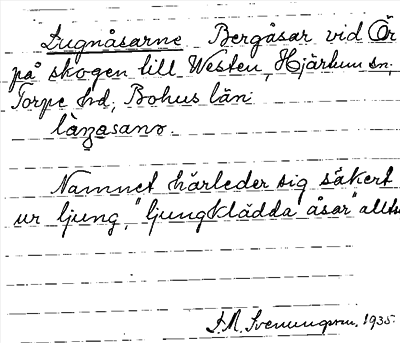 Lugnåsarne Bergåsar vid Ör
på skogen till Westen, Hjärtum sn;
Torpe hd, Bohus län.
Namnet härleder sig säkert
ur ljung, "ljungklädda åsar"
1935.